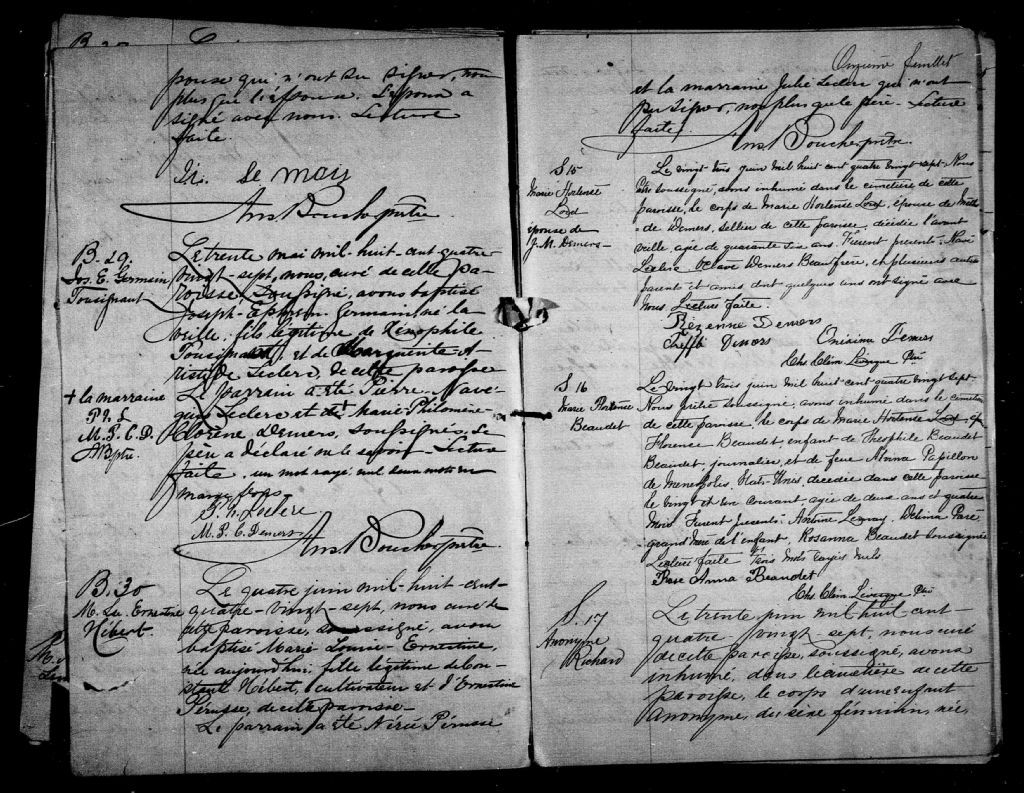 pouse qui n'ont su signer, non
plus que l'épouse. L'époux a
signé avec nous. Lecture
faite.
Le may
Ans Boucher ptre
B. 29.
Jos. E. Germain
Tousignant
Le trente mai mil-huit-cent quatre
vingt-sept, nous, curé de cette pa-
roisse, soussigné, avons baptisé
Joseph-Ephrem Germain, né la
veille, fils légitime de Xénophile
Tousignant, et de Marguerite-A-
Leclerc, de cette paroisse
+ la marraine
P. N. L.
M. P. C. D.
ABptre.
Le parrain a été Pierre-Navè-
Leclerc et + Marie-Philomène-
Clorène Demers, soussignés. Le
père a déclaré ne le savoir. Lecture
faite. un mot rayé nul deux mots en
marge bons
P. N. Leclerc
M. P. C. Demers
Ans Boucher ptre.
B. 30
M. Ls. Ernestine
Hébert.
Le quatre juin mil-huit-cent-
quatre-vingt-sept, nous curé de
cette paroisse, soussigné, avons
baptisé Marie-Louise-Ernestine,
née aujourd'hui, fille légitime de Cons-
tant Hébert, cultivateur et d'Ernestine
Pérusse, de cette paroisse-
Le parrain a été Nérée Pérusse
Onzième feuillet
et la marraine Julie Leclerc qui n'ont
pu signer, non plus que le père. Lecture
faite.
Ans Boucher ptre.
S 15
Marie Hortense
Lord
épouse de
J. M. Demers
Le vingt trois juin mil huit cent quatre vingt sept. Nous
Ptre soussigné, avons inhumé dans le cimetière de cette
paroisse, le corps de Marie Hortense Lord, épouse de
de Demers, sellier de cette paroisse, décédée l'avant
veille, agée de quarante six ans. Furent présents: Navè
Leclerc Octave Demers Beaufrère, et plusieurs autres
parents et amis dont quelques uns ont signé avec
Nous. Lecture faite.
Rezenne Demers
Treffle Demers Onésime Demers
Chs. Clém. Levasque Ptre
S 16
Marie Hortense
Beaudet
Le vingt trois juin mil huit cent quatre vingt sept.
Nous prêtre soussigné, avons inhumé dans le cimetière
de cette paroisse, le corps de Marie Hortense Lord,
Florence Beaudet enfant de Théophile Beaudet
Beaudet, journalier, et de feue Anna Papillon
de Menopolis, Etats-Unis, décédée dans cette paroisse
le vingt et un courant agée de deux ans et quatre
mois. Furent présents: Antoine Lemay, Délina Paré
grand mère de l'enfant, Rosanna Beaudet soussignés
Lecture faite Trois mots rayés nuls
Rose Anna Beaudet
Chs. Clém. Levasque Ptre
S. 17
Anonyme
Richard
Le trente juin mil huit cent-
quatre vingt sept, nous curé
de cette paroisse, soussigné, avons
inhumé, dans le cimetière de cette
paroisse, le corps d'une enfant
Anonyme, du sexe féminin, née,